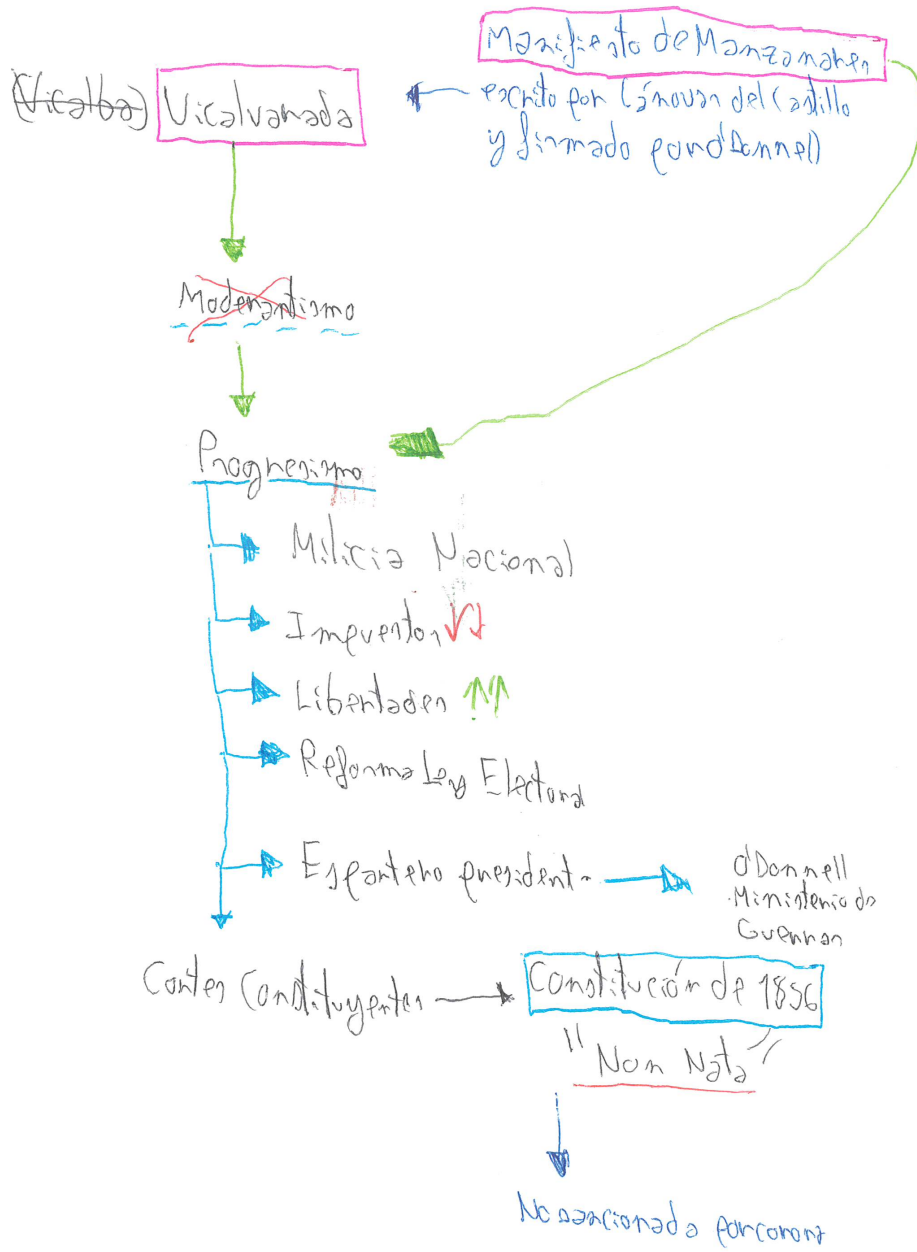 Manifiesto de Manzanares
(Vicalba) Vicalvarada
escrito por Cánovas del Castillo
y firmado por O'Donnell
Moderantismo
Progresismo
Milicia Nacional
Impuestos ↓↓
Libertades ↑↑
Reforma Ley Electoral
Espartero president
O'Donnell
Ministerio de
Guerras
Cortes Constituyentes
Constitución de 1856
"Non Nata"
No sancionada por corona